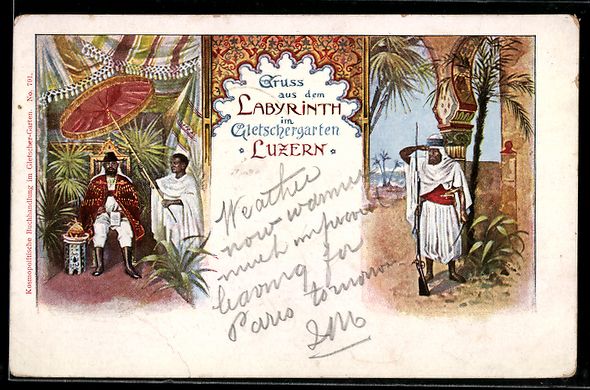 Gruss
aus dem
LABYRINTH
im
Gletschergarten
LUZERN
Weather
now warmer
much improved
leaving for
Paris tomorrow
Kosmopolitische Buchhandlung im Gletscher-Garten. No. 791.